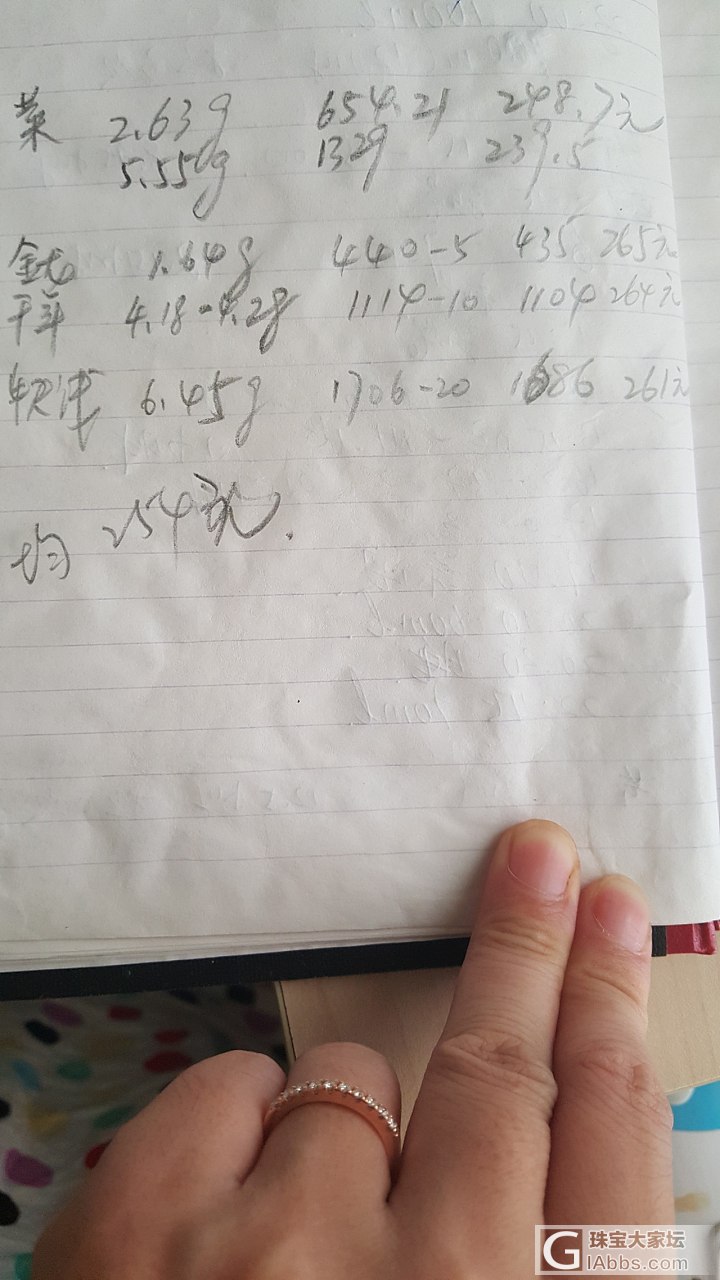 菜 2.63g 654.21 248.7元
5.55g 1329 239.5
金龙 1.64g 440-5 435 265元
平 4.18-4.2g 1114-10 1104 264元
6.45g 1706-20 1686 261元
均 254元.
珠宝大家坛
GIAbbs.com